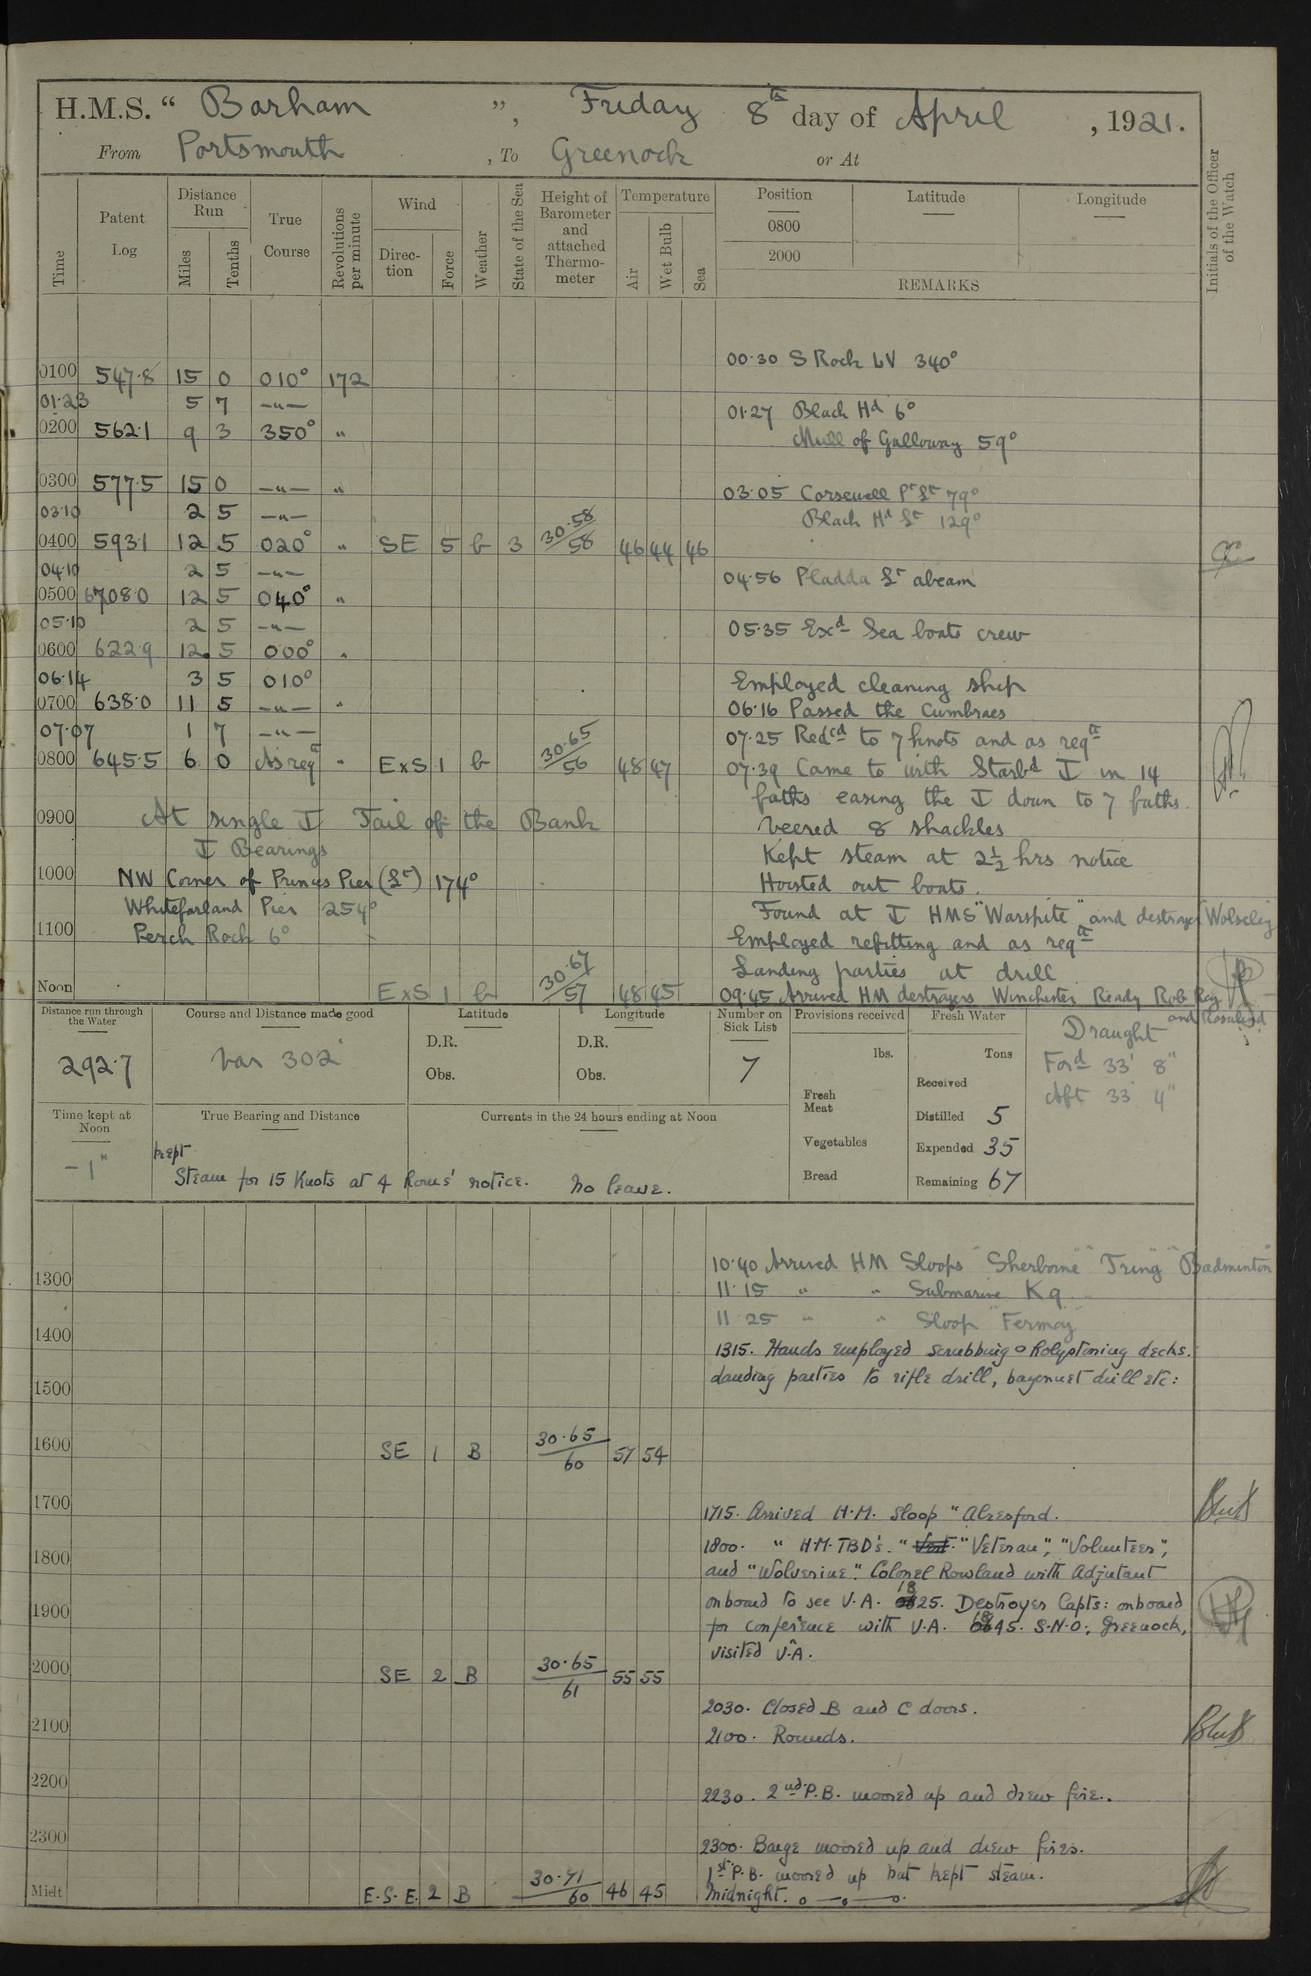 H.M.S. “ Barham ”, Friday 8th day of April, 1921.
From Portsmouth, To Greenock or At
Time
Patent Log
Distance Run
Miles
Tenths
True Course
Revolutions per minute
Wind
Direction
Force
Weather
State of the Sea
Height of Barometer and attached Thermometer
Temperature
Air
Wet Bulb
Sea
Position
0800
2000
Latitude
Longitude
REMARKS
Initials of the Officer of the Watch
00·30 S Rock LV 340°
0100 547·8 15 0 010° 172
01·23 5 7 –"–
01·27 Black Hd 6°
0200 562·1 9 3 350° "
Mull of Galloway 59°
0300 577·5 15 0 –"– "
03·05 Corsewall Pt Lt 79°
03·10 2 5 –"–
Black Hd Lt 129°
0400 593·1 12 5 020° " SE 5 b 3 30·58/58 46 44 46
04·10 2 5 –"–
04·56 Pladda Lt abeam
0500 6708·0 12 5 040° "
05·10 2 5 –"–
05·35 Exd Sea boats crew
0600 622·9 12 5 000° "
06·14 3 5 010°
Employed cleaning ship
0700 638·0 11 5 –"– "
06·16 Passed the Cumbraes
07·07 1 7 –"–
07·25 Redcd to 7 knots and as reqte
0800 645·5 6 0 As reqte " ExS 1 b 30·65/56 48 47
07·39 Came to with Starbd ⚓ in 14
faths easing the ⚓ down to 7 faths.
0900 At single ⚓ Tail of the Bank
Veered 8 shackles
⚓ Bearings
Kept steam at 2½ hrs notice
1000 NW Corner of Princes Pier (Lt) 174°
Hoisted out boats.
Whitefarland Pier 254°
Found at ⚓ HMS "Warspite" and destroyer "Wolseley"
1100 Perch Rock 6°
Employed refitting and as reqte
Landing parties at drill
Noon ExS 1 b 30·67/57 48 45
09·45 Arrived HM destroyers Winchester Ready Rob Roy
and Rosalind
Distance run through the Water
292·7
Course and Distance made good
Var 302'
Latitude
D.R.
Obs.
Longitude
D.R.
Obs.
Number on Sick List
7
Provisions received
lbs.
Fresh Meat
Vegetables
Bread
Fresh Water
Tons
Received
Distilled 5
Expended 35
Remaining 67
Draught
Ford 33' 8"
Aft 33' 4"
Time kept at Noon
-1"
True Bearing and Distance
Currents in the 24 hours ending at Noon
kept
Steam for 15 Knots at 4 hours' notice. No leave.
10·40 Arrived HM Sloops "Sherborne" "Tring" "Badminton"
1300
11·15 " " Submarine K9
11 25 " " Sloop "Fermoy"
1400
1315. Hands employed scrubbing & holystoning decks.
Landing parties to rifle drill, bayonuet drill etc:
1500
1600 SE 1 B 30·65/60 57 54
1700
1715. Arrived H.M. Sloop "Alresford.
1800. " H.M. TBD's. "Veteran", "Volunteer",
1800
and "Wolverine". Colonel Rowland with Adjutant
onboard to see V.A. 1825. Destroyer Capts: onboard
1900
for conference with V.A. 1845. S.N.O., Greenock,
visited V.A.
2000 SE 2 B 30·65/61 55 55
2030. Closed B and C doors.
2100
2100. Rounds.
2200
2230. 2nd P.B. moored up and drew fire.
2300
2300. Barge moored up and drew fires.
1st P.B. moored up but kept steam.
Midt E.S.E. 2 B 30·71/60 46 45
Midnight.